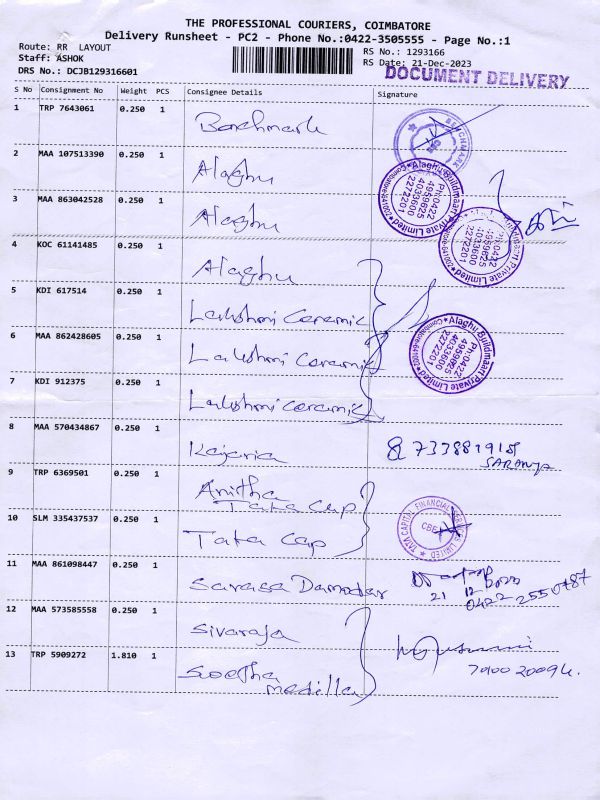 THE PROFESSIONAL COURIERS, COIMBATORE
Delivery Runsheet - PC2 - Phone No.:0422-3505555 - Page No.:1
Route: RR LAYOUT
RS No.: 1293166
Staff: ASHOK
RS Date: 21-Dec-2023
DRS No.: DCJB129316601
DOCUMENT DELIVERY
S No Consignment No Weight PCS Consignee Details Signature
1 TRP 7643061 0.250 1 Benchmark
BENCHMARK
2 MAA 107513390 0.250 1 Alaghu
Alaghu Buildmaart Private Limited
Ph:0422
4959625
4033600
2272201
3 MAA 863042528 0.250 1 Alaghu
Private Limited
Ph:0422
4959625
4033600
2272201
4 KOC 61141485 0.250 1 Alaghu
5 KDI 617514 0.250 1 Lakshmi Ceramic
6 MAA 862428605 0.250 1 Lakshmi Ceramic
Alaghu Buildmaart Private Limited
Ph:0422
4959625
4033600
2272201
7 KDI 912375 0.250 1 Lakshmi Ceramic
8 MAA 570434867 0.250 1 Kajaria
SARANYA
9 TRP 6369501 0.250 1 Anitha
Tata Cap
10 SLM 335437537 0.250 1 Tata Cap
TATA CAPITAL FINANCIAL LIMITED
CBE
11 MAA 861098447 0.250 1 Sarasa Damodar
21 12
0422 2550787
12 MAA 573585558 0.250 1 Sivaraja
13 TRP 5909272 1.810 1 Swetha